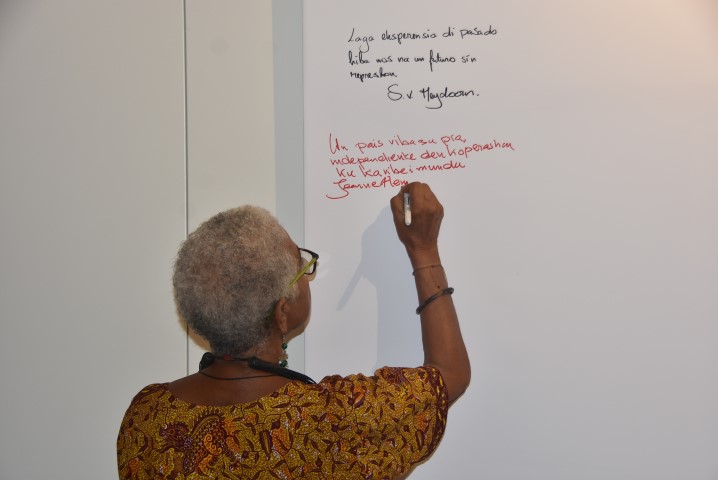 Laga eksperensia di pasado
hiba nos na un futuro sin
represhon.
S.v. Heydoorn.
Un pais riba su pia,
independiente den koperashon
ku Karibe i mundu
Jeanne Hen